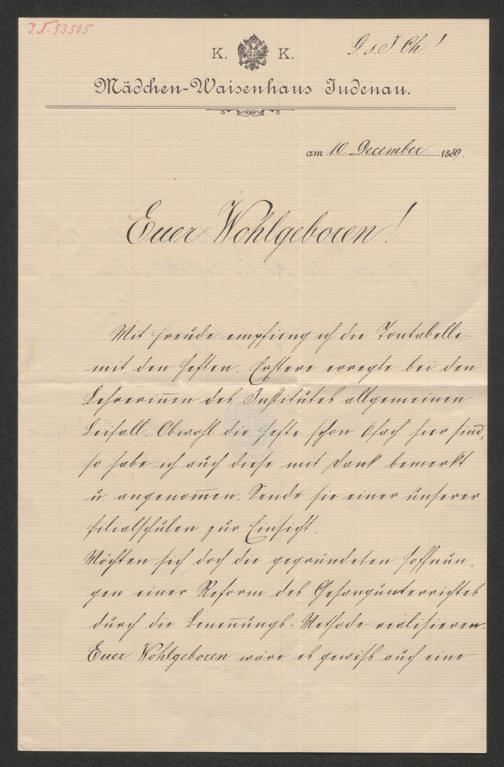 I.N. 93505
G. s. J. Ch!
K. K.
Mädchen-Waisenhaus Judenau.
am 10. December 1889.
Euer Wohlgeboren!
Mit Freude empfieng ich die Tontabelle
mit den Heften. Erstere erregte bei den
Lehrerinen des Institutes allgemeinen
Beifall. Obwohl die Hefte schon 6fach hier sind,
so habe ich auch diese mit Dank bemerkt
u angenom̅en. Sende sie einer unserer
Filialschulen zur Einsicht.
Möchten sich doch die gegründeten Hoffnun-
gen einer Reform des Gesangunterrichtes
durch die Benen̅ungs-Methode realisieren.
Euer Wohlgeboren wäre es gewiß auch eine